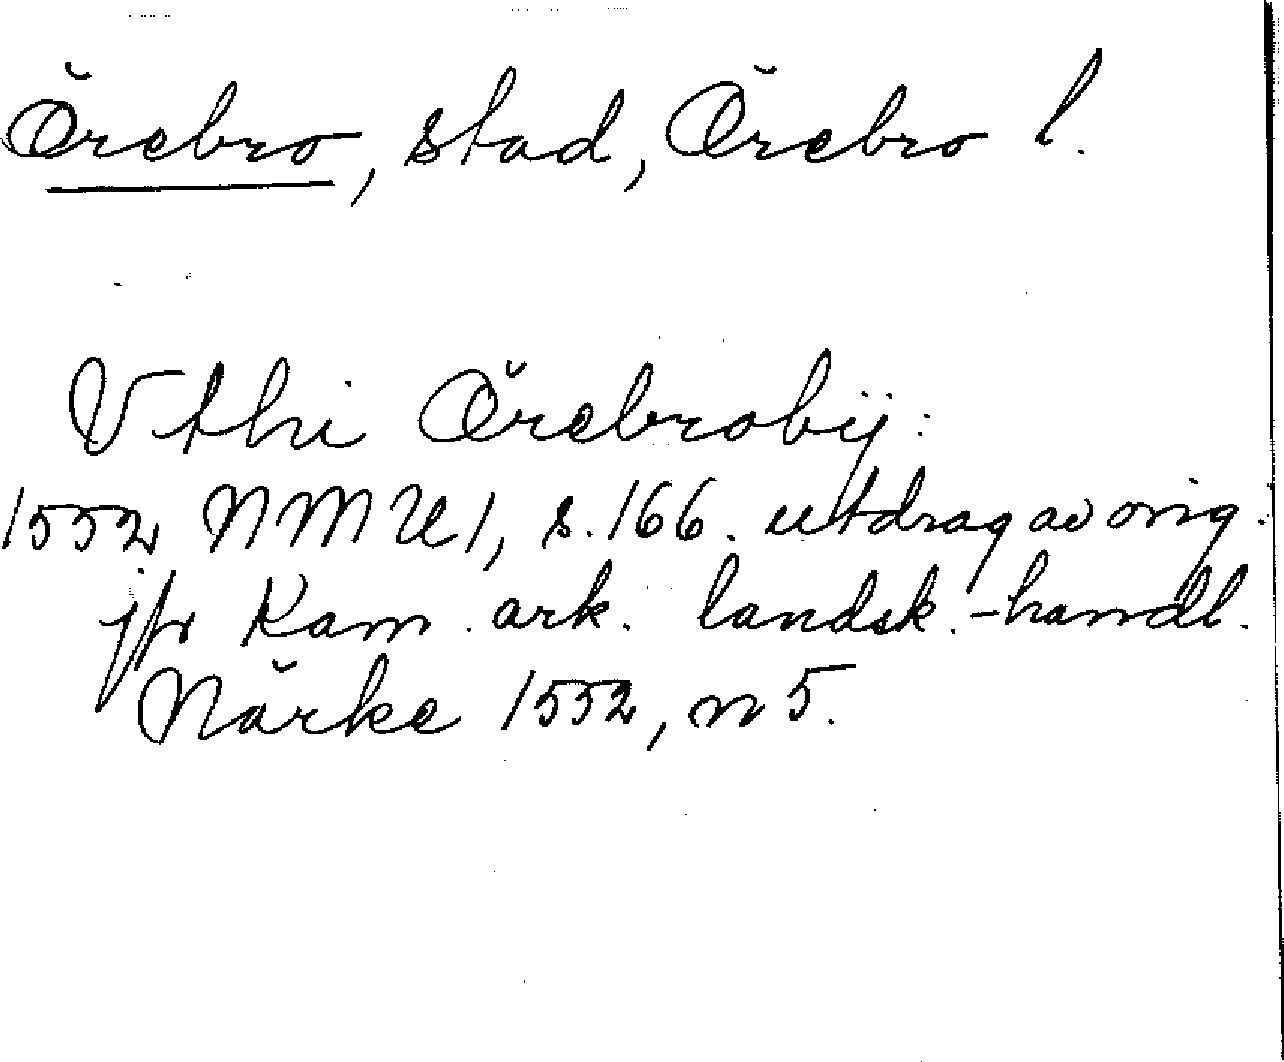 Örebro, stad, Örebro l.
Vthi Örebrobÿ:
1552 NMU1, s. 166. utdrag av orig.
jfr Kam. ark. landsk.-handl.
Närke 1552, n 5.